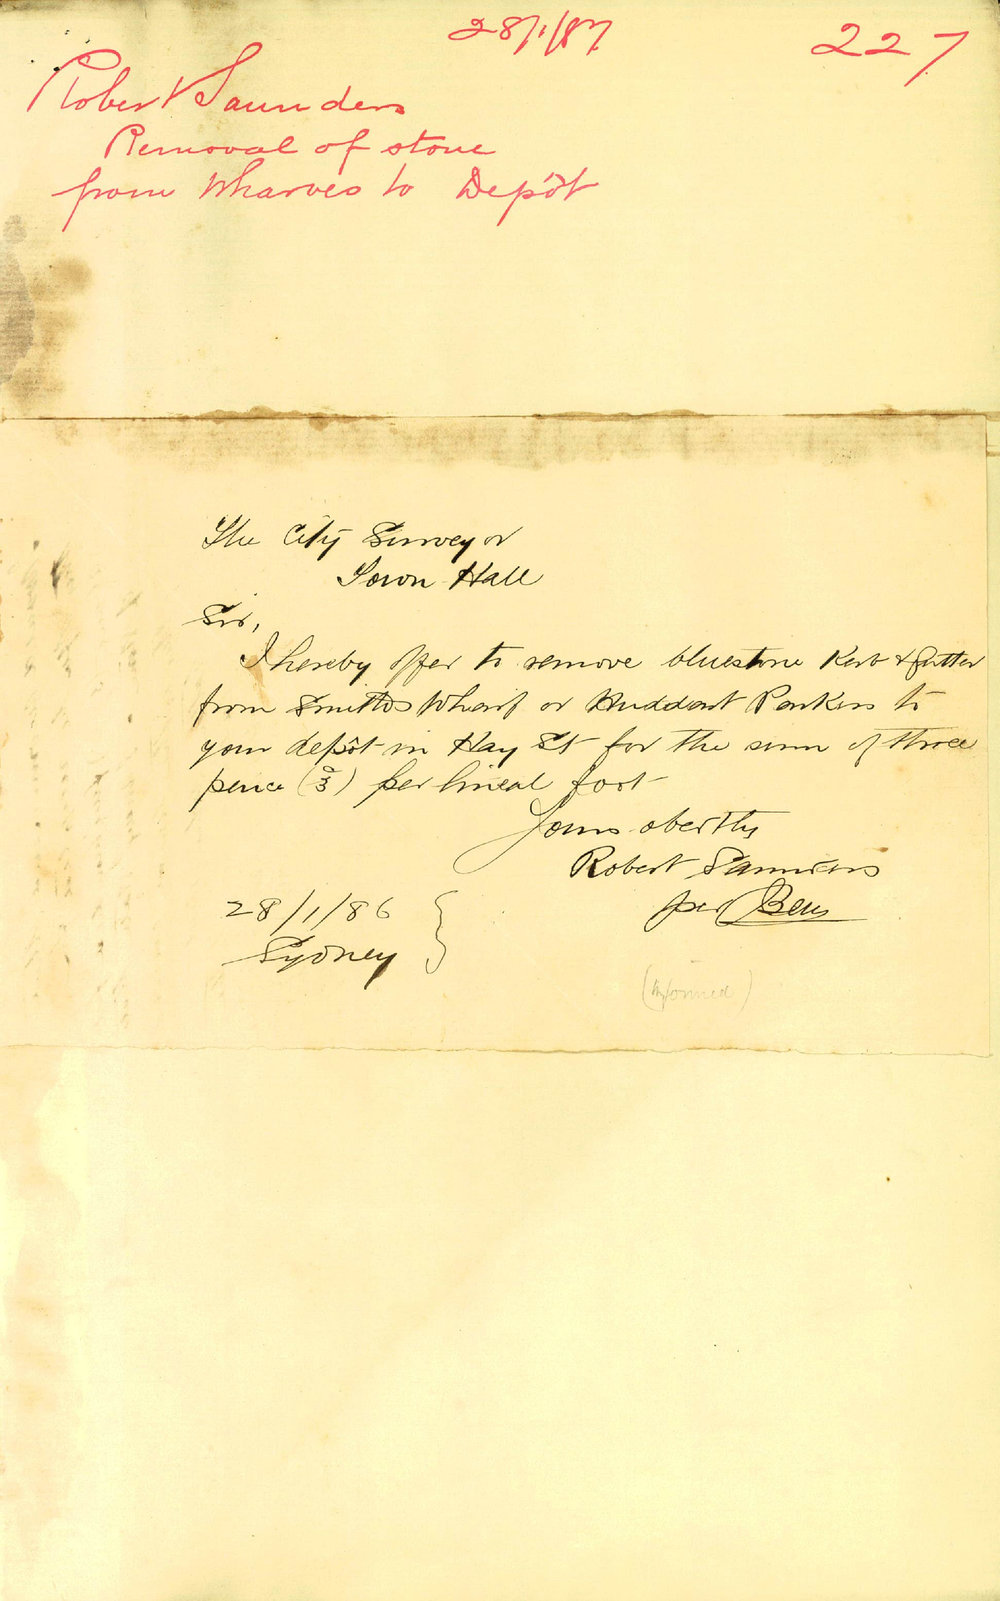 28/1/87
227
Robert Saunders
Removal of stone
from Wharves to Depôt
The City Surveyor
Town Hall
Sir,
I hereby offer to remove bluestone Kerb & Gutter
from Smiths Wharf or Huddart Parkers to
your depôt in Hay St for the sum of three
pence (3) per lineal foot
Yours obertly
Robert Saunders
per
28/1/86
Sydney
(Informed)